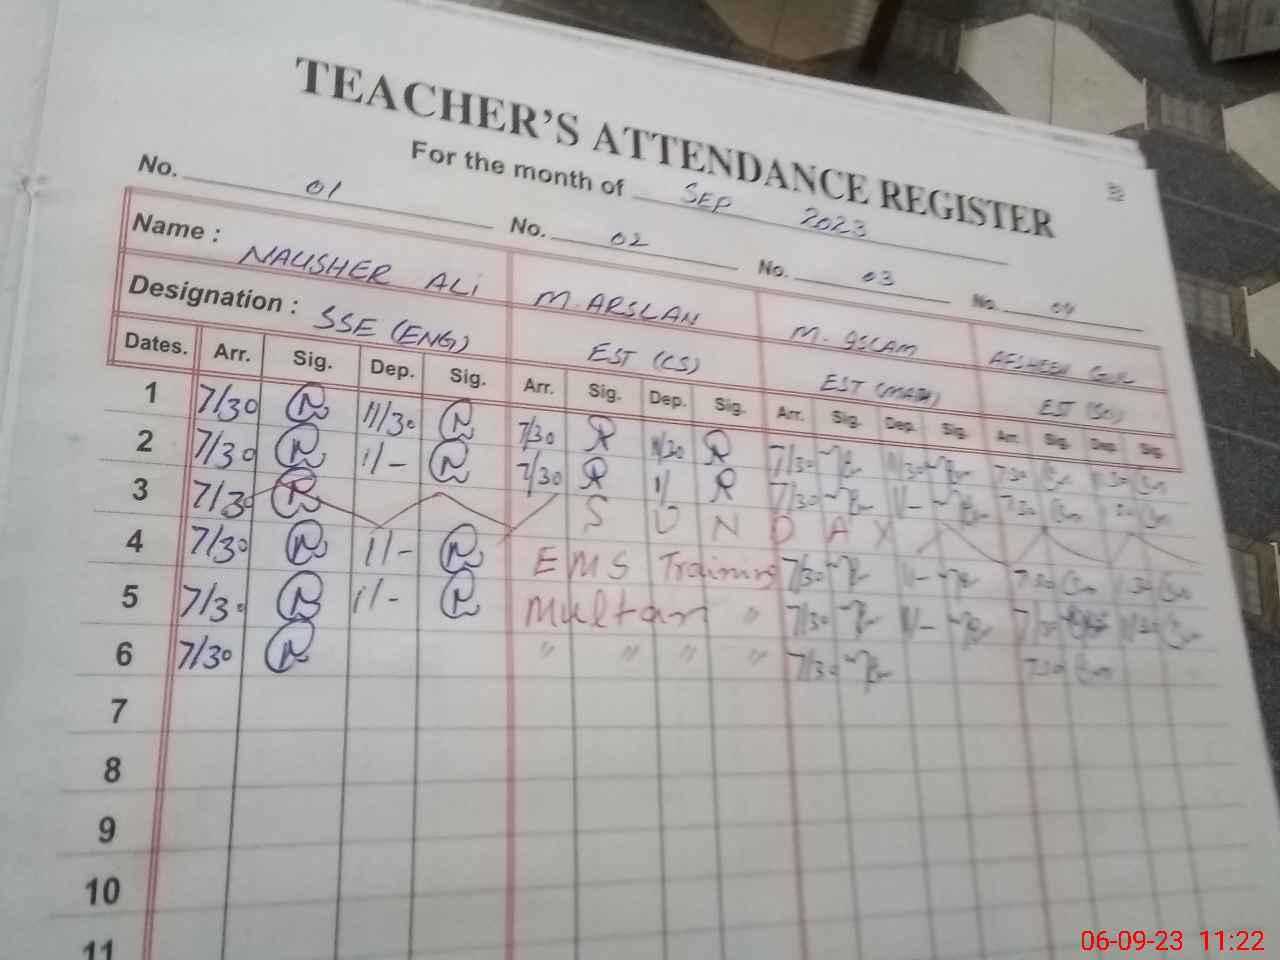 TEACHER'S ATTENDANCE REGISTER
For the month of SEP 2023
No. 01 No. 02 No. 03 No. 04
Name : NAUSHER ALI M. ARSLAN M. ASLAM AFSHEEN GUL
Designation : SSE (ENG) EST (CS) EST (MATH) EST (Sci)
Dates. Arr. Sig. Dep. Sig. Arr. Sig. Dep. Sig. Arr. Sig. Dep. Sig. Arr. Sig. Dep. Sig.
1 7/30 11/30 7/30 11/30 7/30 11/30 7:30 11:30
2 7/30 11/- 7/30 11/ 7/30 11/- 7:30
3 7/30 S U N D A Y
4 7/30 11/- EMS Training 7/30 11/- 7:30 11:30
5 7/30 11/- Multan " 7/30 11/- 7/30 11/30
6 7/30 " " " " 7/30 7:30
7
8
9
10
11
06-09-23 11:22